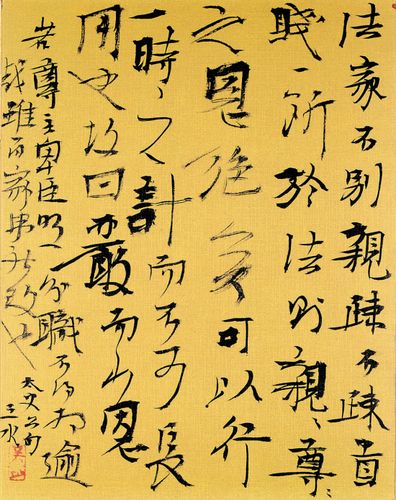 法家不別親疎不殊貴
賤一断於法則親〻尊〻
之恩絶矣可以行
一時之計而不可長
用也故曰嚴而少恩
若尊主卑臣明分職不得相逾
越雖百家弗能改也
太史公句